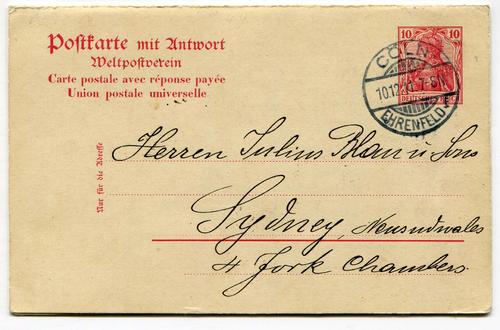 Postkarte mit Antwort
Weltpostverein
Carte postale avec réponse payée
Union postale universelle
10 10
DEUTSCHES REICH
CÖLN
10.12. 7-8N
EHRENFELD
Nur für die Adresse
Herren Julius Blau u Sons
Sydney, Neusüdwales
4 York Chambers.